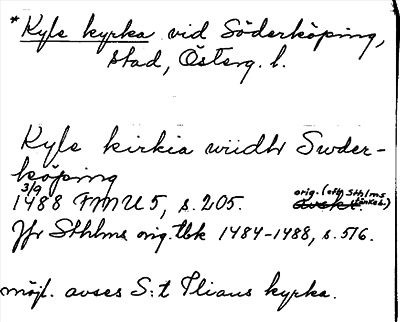 *Kyle kyrka vid Söderköping,
stad, Österg. l.
Kyle kirkia widhr Swder-
köping
3/9
1488 FMU 5, s. 205. orig. (eft. Sthlms
avskr.
Jfr Sthlms orig. tbk 1484-1488, s. 516.
möjl. avses S:t Ilians kyrka.